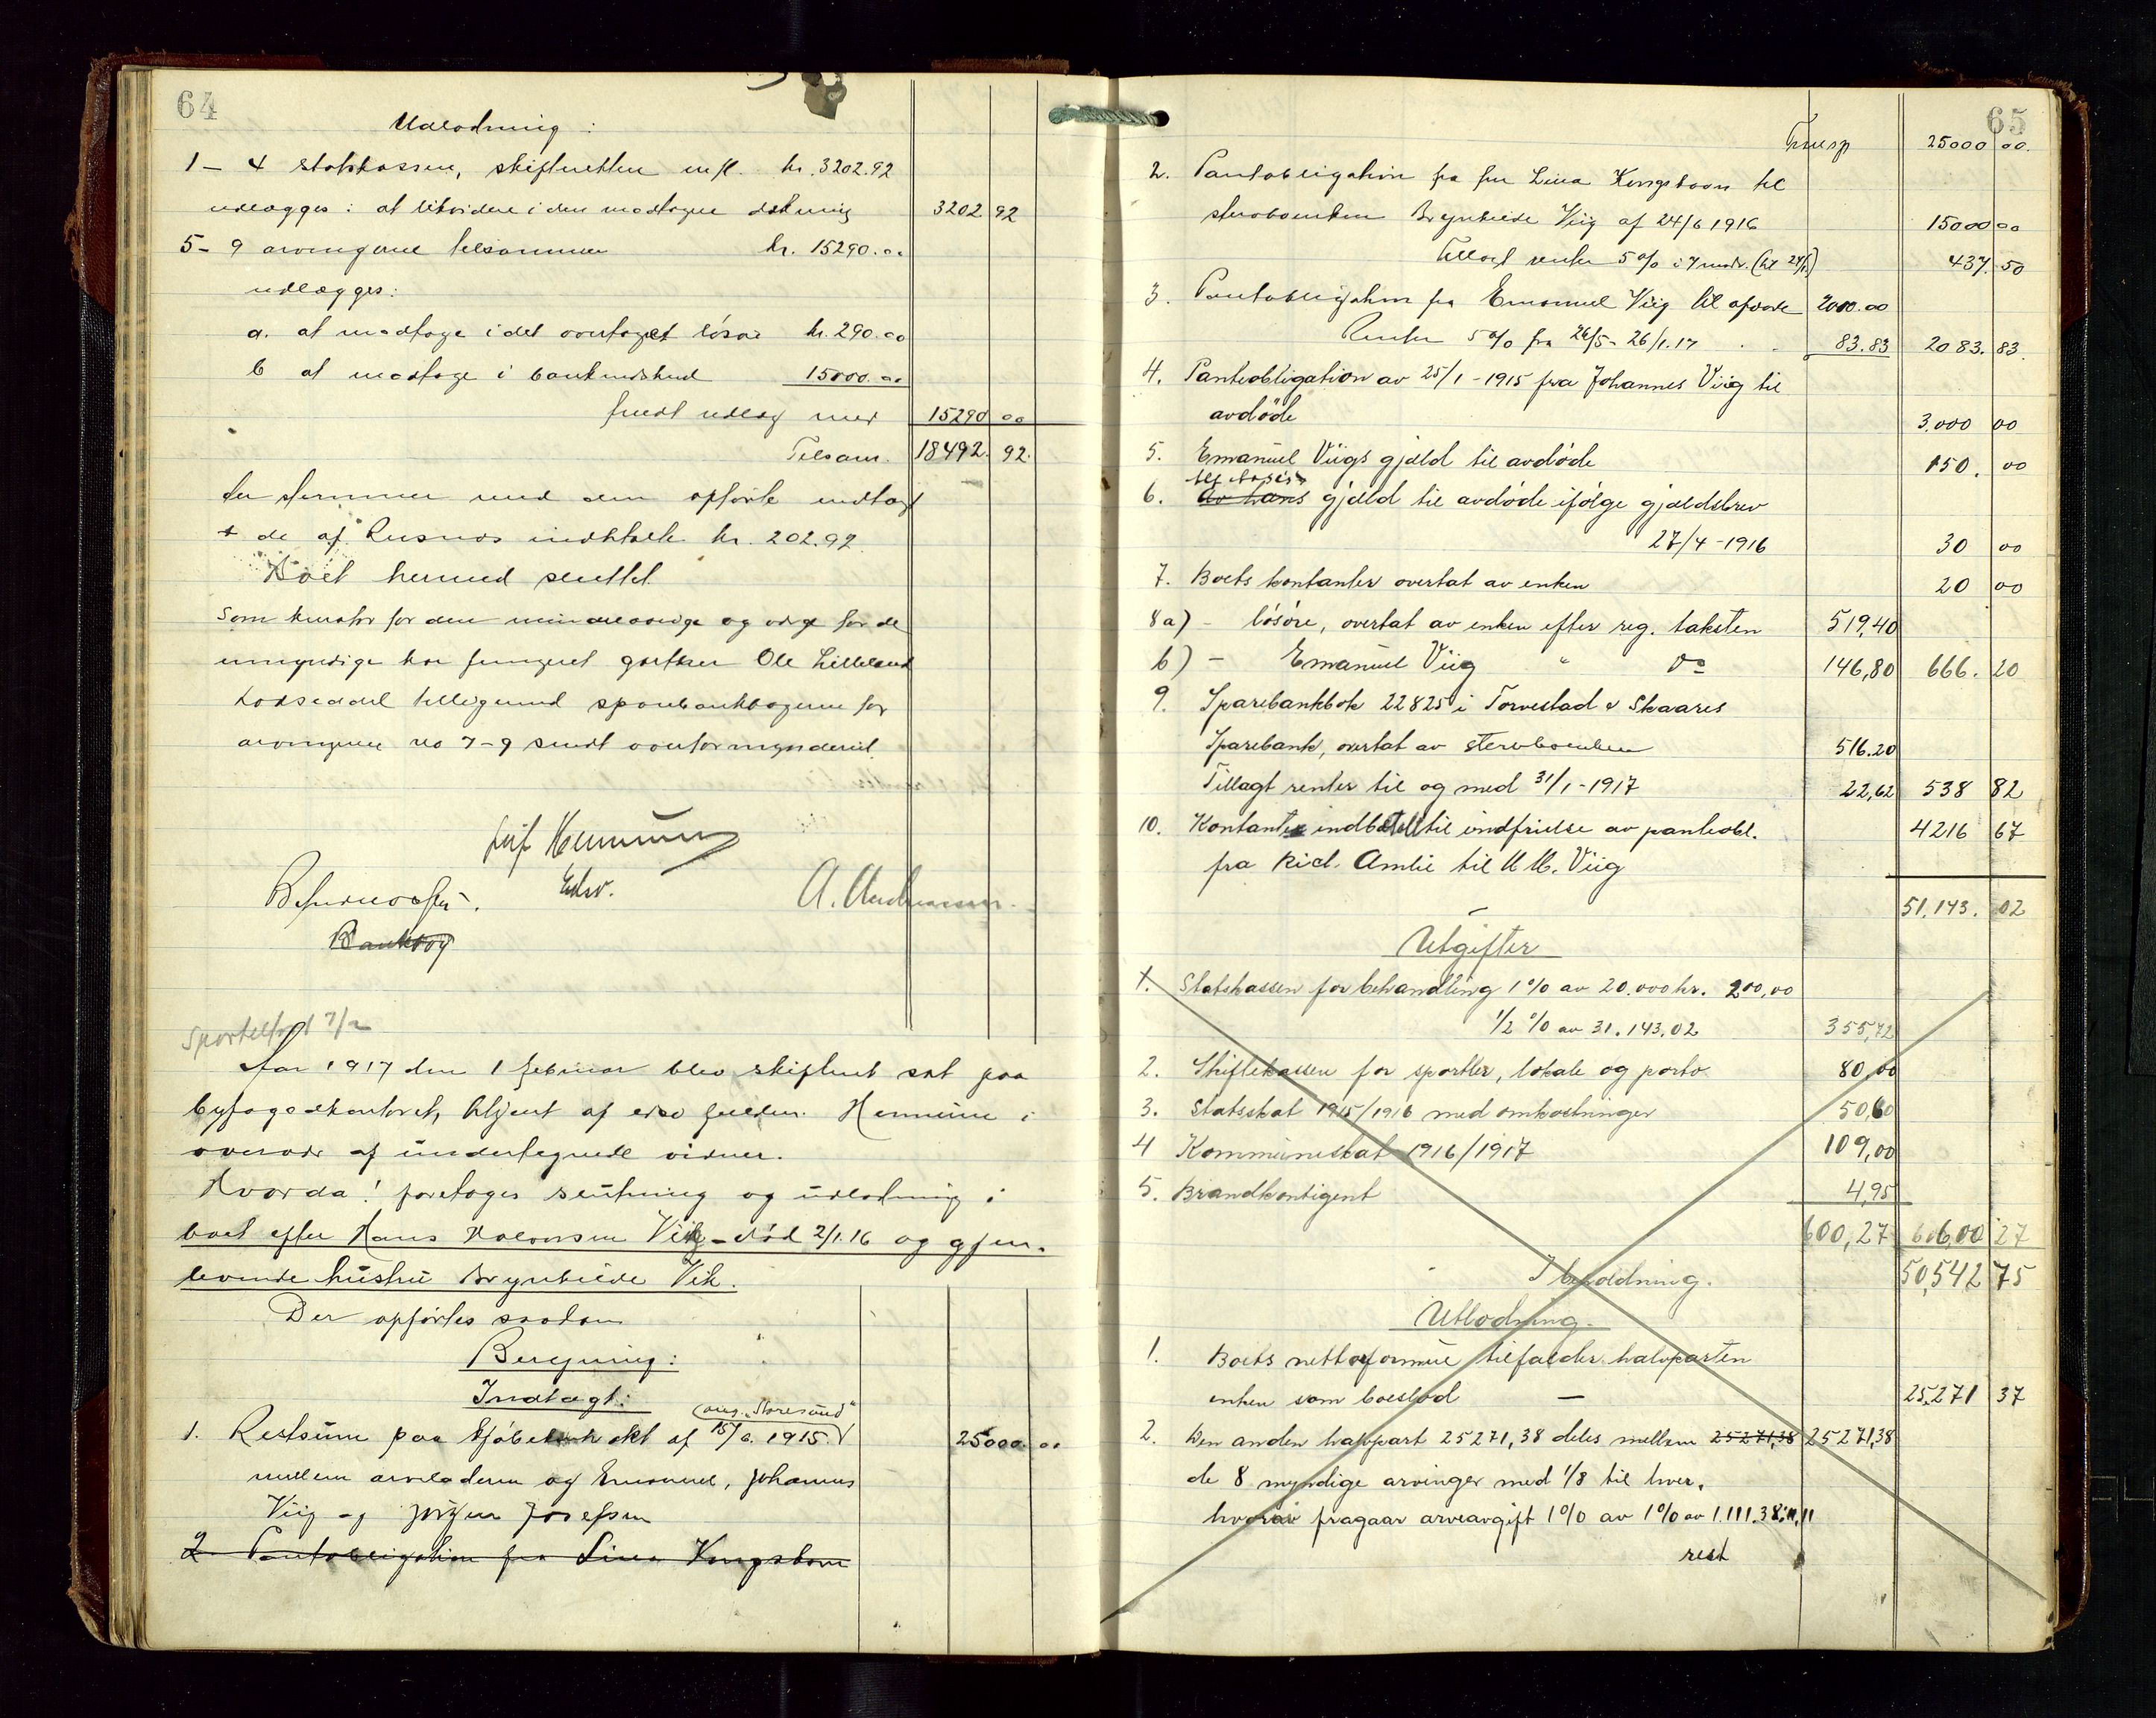 64
Udlodning:
1 – 4 statskassen, skifteretten m fl. kr. 3202.92
udlægges: at likvidere i den modtagne dækning 3202 92
5 – 9 arvingerne tilsammen kr. 15290.00
udlægges:
a. at modtage i det overtaget løsøre kr. 290.00
b at modtage i bankindskud 15000.00
fuldt udlæg med 15290 00
Tilsam. 18492. 92.
der stemmer med den opførte indtægt
+ de af Rusnæs indbetalte kr. 202.92
Boet hermed sluttet
Som kurator for den mindreaarige og verge for de
umyndige har fungeret gartner Ole Lilleland
Lodseddel tilligemed sparebankbøgerne for
arvingerne no 7-9 sendt overformynderiet
Edsv.
A. Andreassen.
Bankbog
Sportelført 7/2
Aar 1917 den 1 februar blev skifteret sat paa
byfogedkontoret, betjent af edsv fuldm. Hemming i
overvær af undertegnede vidner.
Hvorda! foretoges slutning og udlodning i
boet efter Hans Halvorsen Viig – død 2/1.16 og gjen-
levende hustru Brynhilde Vik.
Der opførtes saadan
Beregning:
Indtægt:
(ang. "Storesund"
1. Restsum paa kjøbekontrakt af 15/6. 1915.) 25000. 00
mellem arveladeren og Emanuel, Johannes
Viig og Jørgen Josefsen
2 Pantobligation fra Lina Kongshavn
65
Transp 25000 00.
2. Pantobligation fra fru Lina Kongshavn til
stervboenken Brynhilde Viig af 24/6 1916 15000 00
Tillagt renter 5 % i 7 mndr. (til 24/1) 437. 50
3. Pantobligation fra Emanuel Viig til afdøde 2000.00
Renter 5 % fra 26/5 – 26/1.17 83.83 2083. 83.
4. Panteobligation av 25/1 – 1915 fra Johannes Viig til
avdöde 3.000 00
5. Emanuel Viigs gjæld til avdöde 150. 00
6. Av hans gjæld til avdöde ifölge gjældsbrev
27/4 – 1916 30 00
7. Boets kontanter overtat av enken 20 00
8a) – lösöre, overtat av enken efter reg. taksten 519,40
b) – Emanuel Viig " do 146,80 666. 20
9. Sparebankbok 22825 i Torvestad & Skaares
Sparebank, overtat av stervboenken 516.20
Tillagt renter til og med 31/1 – 1917 22,62 538 82
10. Kontanter indbetalt til indfrielse av panteobl. 4216 67
fra Rich. Amlie til H H. Viig
51.143. 02
Utgifter
1. Statskassen for behandling 1 % av 20.000 kr. 200,00
1/2 % av 31.143.02 355,72
2. Skiftekassen for sportler, lokale og porto 80,00
3. Statsskat 1915/1916 med omkostninger 50,60
4 Kommuneskat 1916/1917 109,00
5. Brandkontigent 4,95
600,27 600 27
I beholdning. 50,542 75
Utlodning.
1. Boets nettoformue tilfalder halvparten
enken som boeslod – 25.271 37
2. Den anden halvpart 25271,38 deles mellem 25271,38 25271,38
de 8 myndige arvinger med 1/8 til hver.
hvorav fragaar arveavgift 1 % av 1 % av 1.111.38: 11,11
rest